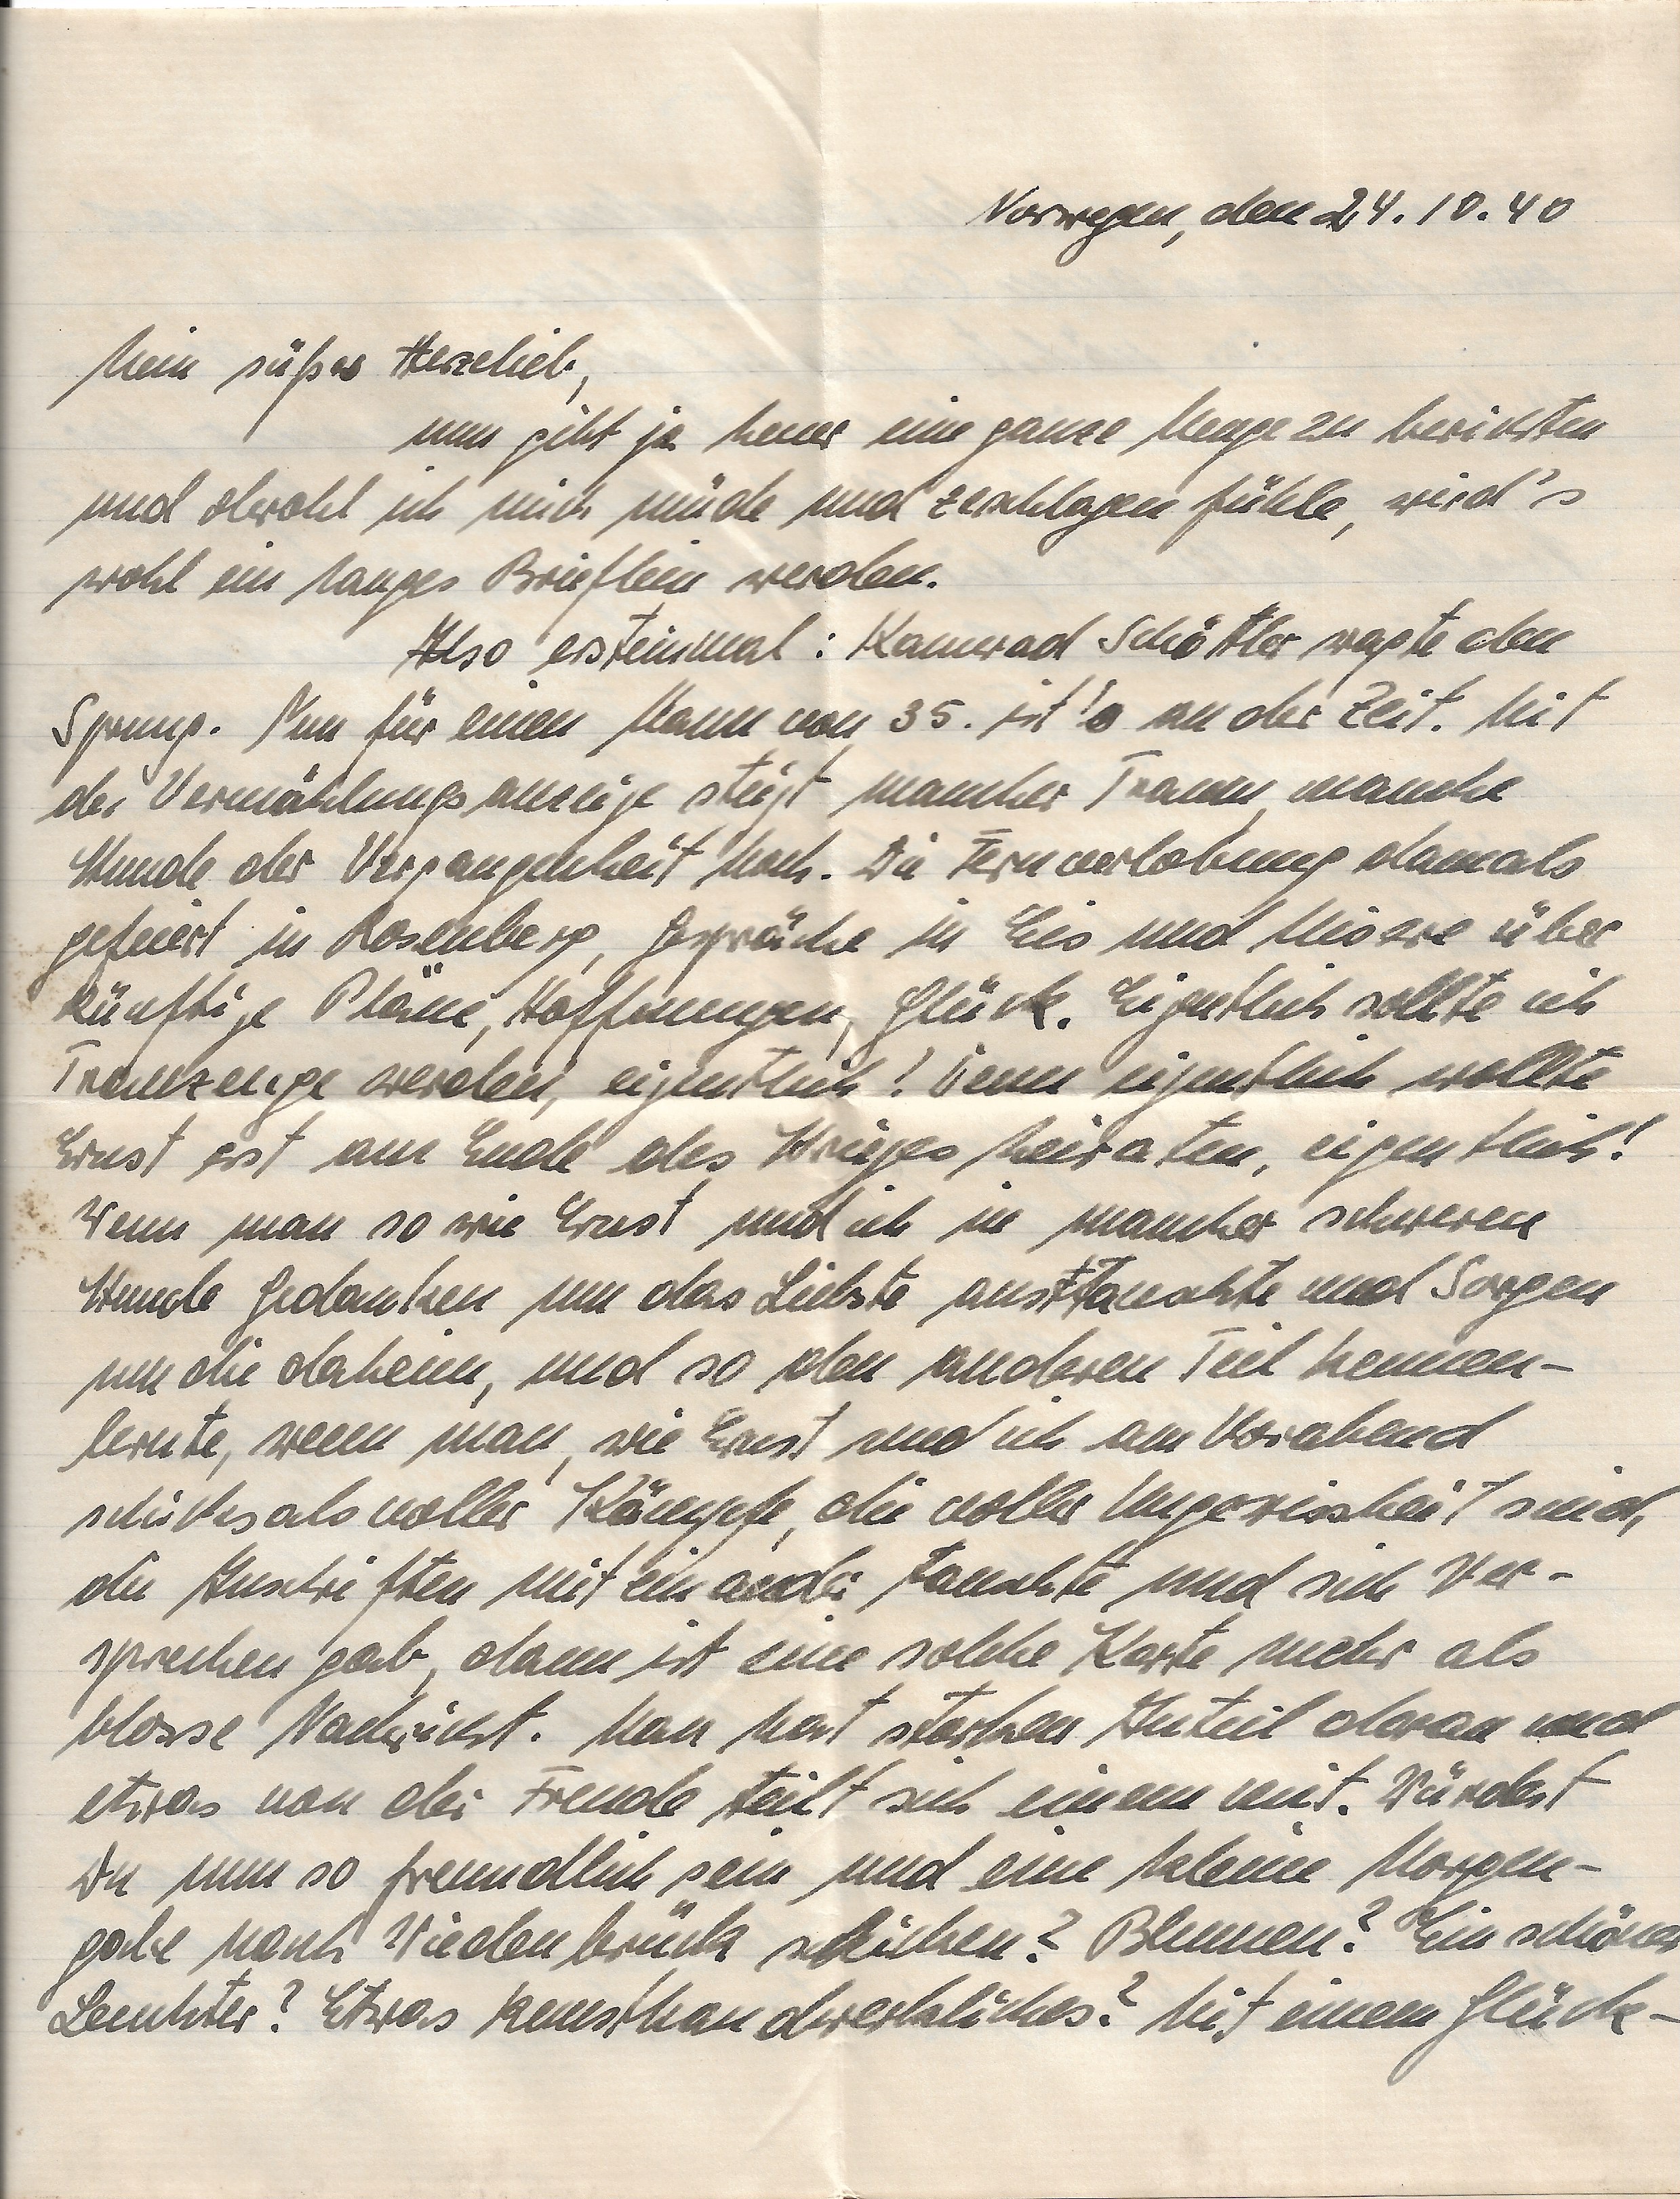 Norwegen, den 24.10.40
Mein süßes Herzelieb,
nun gibt ja heuer eine ganze Menge zu berichten
und obwohl ich mich müde und zerschlagen fühle, wird's
wohl ein langes Brieflein werden.
Also ersteinmal: Kamerad Schöttler wagte den
Sprung. Nun für einen Mann von 35. ist's an der Zeit. Mit
der Vermählungsanzeige steigt mancher Traum, manche
Stunde der Vergangenheit hoch. Die Fernverlobung damals
gefeiert in Rosenberg, Gespräche in Eis und Misere über
künftige Pläne, Hoffnungen, Glück. Eigentlich sollte ich
Trauzeuge werden, eigentlich! Denn eigentlich wollte
Ernst erst am Ende des Krieges heiraten, eigentlich!
Wenn man so wie Ernst und ich in mancher schweren
Stunde Gedanken um das Liebste austauschte und Sorgen
um die daheim, und so den anderen Teil kennen-
lernte, wenn man, wie Ernst und ich am Vorabend
schicksalsvoller Kämpfe, die voller Ungewissheit sind,
die Anschriften miteinander tauschte und sich Ver-
sprechen gab, dann ist eine solche Karte mehr als
blosse Nachricht. Man hat starken Anteil daran und
etwas von der Freude teilt sich einem mit. Würdest
Du nun so freundlich sein und eine kleine Morgen-
gabe nach Wiedenbrück schicken? Blumen? Ein schöner
Leuchter? Etwas kunsthandwerkliches? Mit einem Glück-